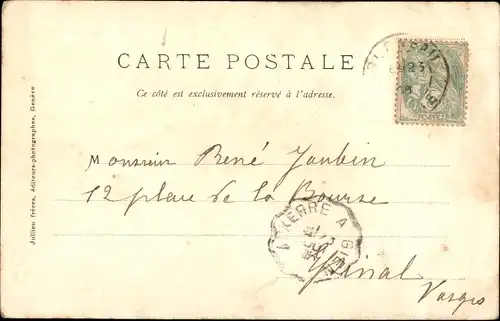 CARTE POSTALE
Ce côté est exclusivement réservé à l'adresse.
Monsieur René Jaubin
12 place de la Bourse
Épinal
Vosges
Jullien frères, éditeurs-photographes, Genève